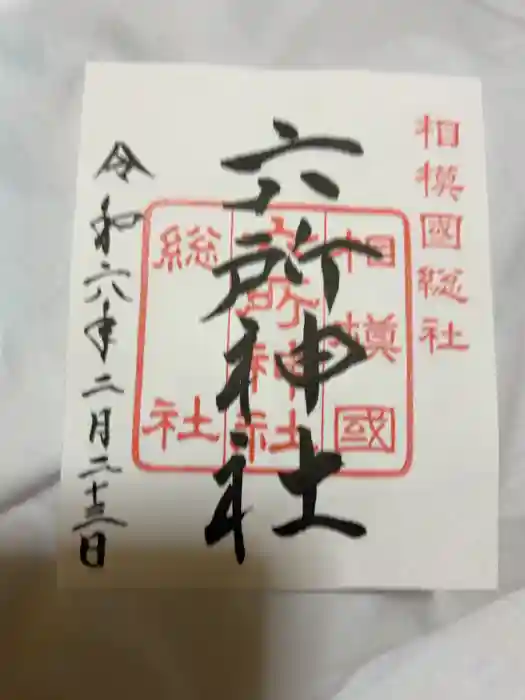 相模國総社
六所神社
相模國
六所神社
総社
令和六年二月二十三日